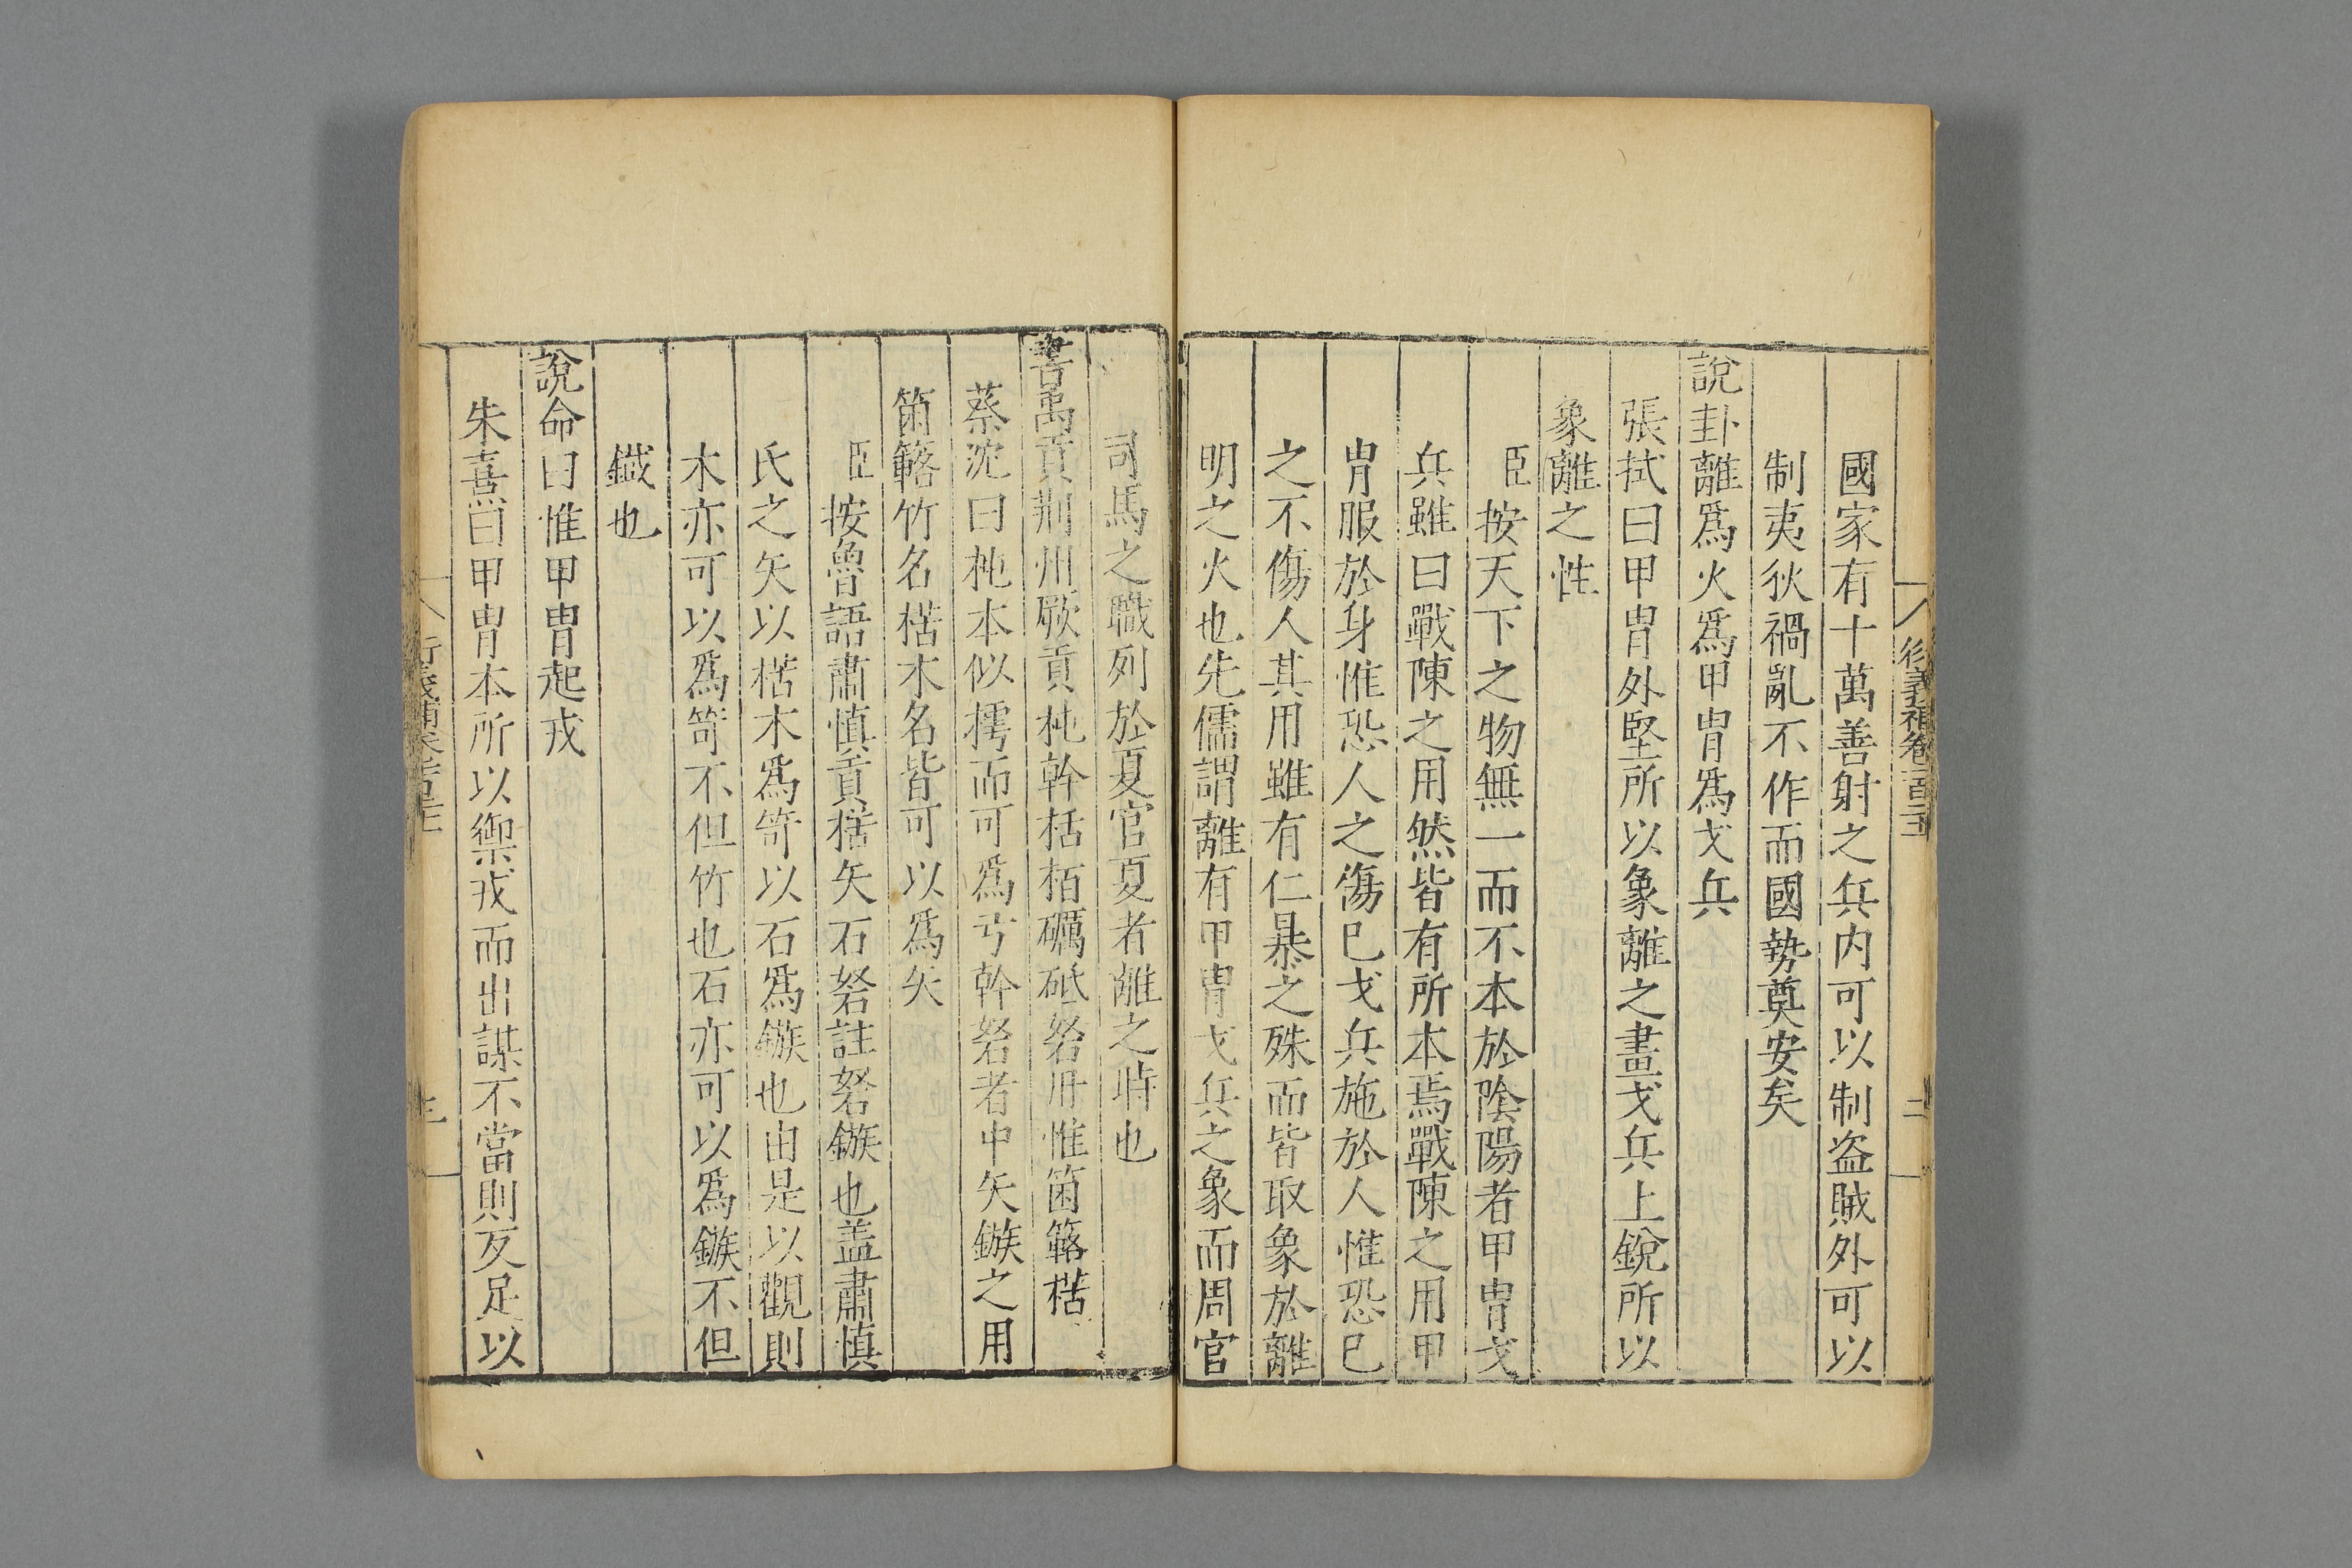 國家有十萬善射之兵内可以制盗賊外可以
制夷狄禍亂不作而國勢奠安矣
說卦離爲火爲甲冑爲戈兵
張拭曰甲冑外堅所以象離之畫戈兵上銳所以
象離之性
臣按天下之物無一而不本於陰陽者甲冑戈
兵雖曰戰陳之用然皆有所本焉戰陳之用甲
冑服於身惟恐人之傷巳戈兵施於人惟恐巳
之不傷人其用雖有仁暴之殊而皆取象於離
明之火也先儒謂離有甲冑戈兵之象而周官
司馬之職列於夏官夏者離之時也
書禹貢荆州厥貢杶幹栝栢礪砥砮丹惟箘簵楛
蔡沈曰杶本似樗而可爲弓幹砮者中矢鏃之用
箘簵竹名楛木名皆可以爲矢
臣按魯語肅慎貢楛矢石砮註砮鏃也盖肅慎
氏之矢以楛木爲笴以石爲鏃也由是以觀則
木亦可以爲笴不但竹也石亦可以爲鏃不但
鐵也
說命曰惟甲冑起戎
朱熹曰甲冑本所以禦戎而出謀不當則反足以